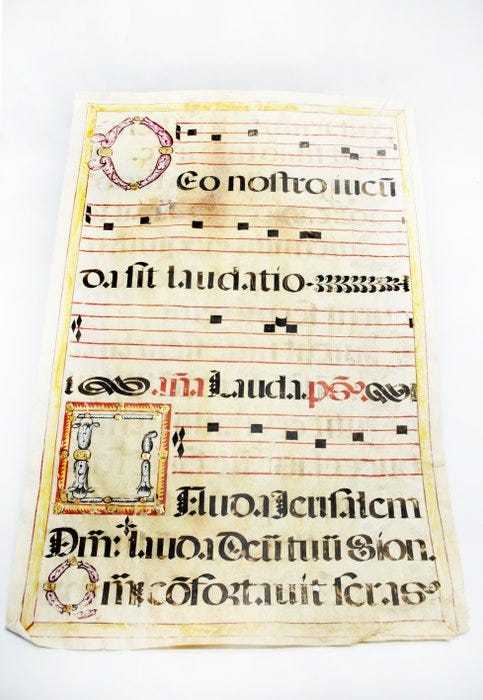 DEo noſtro iucū
da ſit laudatio.
.aña Lauda. ps̄.
LAuda Jeruſalem
Dm̄: lauda Deū tuū Sion.
Qm̄ cōfortauit ſeras